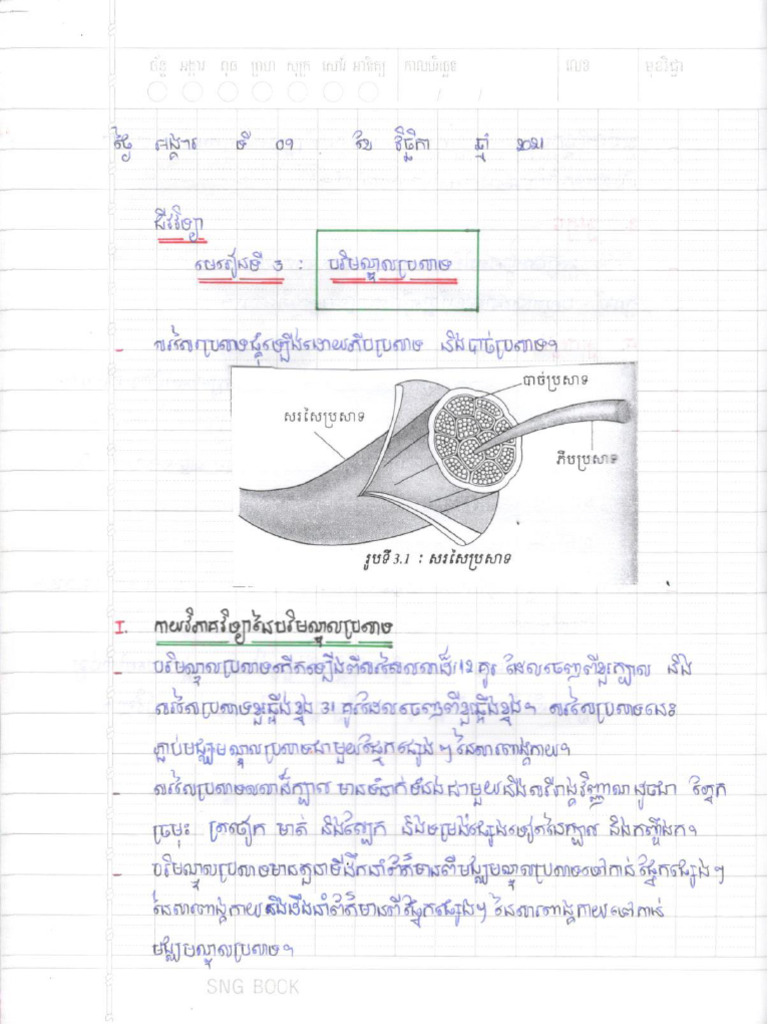 ច័ន្ទ អង្គារ ពុធ ព្រហ សុក្រ សៅរ៍ អាទិត្យ កាលបរិច្ឆេទ លេខ មុខវិជ្ជា
ថ្ងៃ អង្គារ ទី 09 ខែ វិច្ឆិកា ឆ្នាំ 2021
ជីវវិទ្យា
មេរៀនទី 3 : បរិមណ្ឌលប្រសាទ
- សរសៃប្រសាទផ្គុំឡើងដោយភីបប្រសាទ និងបាច់ប្រសាទ។
បាច់ប្រសាទ
សរសៃប្រសាទ
ភីបប្រសាទ
រូបទី 3.1 : សរសៃប្រសាទ
I. កាយវិភាគវិទ្យានៃបរិមណ្ឌលប្រសាទ
- បរិមណ្ឌលប្រសាទកើតឡើងពីសរសៃលលាដ៍ 12 គូរ ដែលចេញពីខួរក្បាល និង
សរសៃប្រសាទខួរឆ្អឹងខ្នង 31 គូរដែលចេញពីខួរឆ្អឹងខ្នង។ សរសៃប្រសាទនេះ
ភ្ជាប់មជ្ឈមណ្ឌលប្រសាទជាមួយផ្នែកផ្សេងៗ នៃសារពាង្គកាយ។
- សរសៃប្រសាទលលាដ៍ក្បាល មានទំនាក់ទំនងជាមួយនឹងសរីរាង្គវិញ្ញាណដូចជា ភ្នែក
ច្រមុះ ត្រចៀក មាត់ និងស្បែក និងទម្រង់ផ្សេងទៀតនៃក្បាល និងកញ្ចឹងក។
- បរិមណ្ឌលប្រសាទមានតួនាទីដឹកនាំព័ត៌មានពីមជ្ឈមណ្ឌលប្រសាទទៅកាន់ ផ្នែកផ្សេងៗ
នៃសារពាង្គកាយ និងដឹកនាំព័ត៌មានពីផ្នែកផ្សេងៗ នៃសារពាង្គកាយទៅកាន់
មជ្ឈមណ្ឌលប្រសាទ។
SNG BOOK